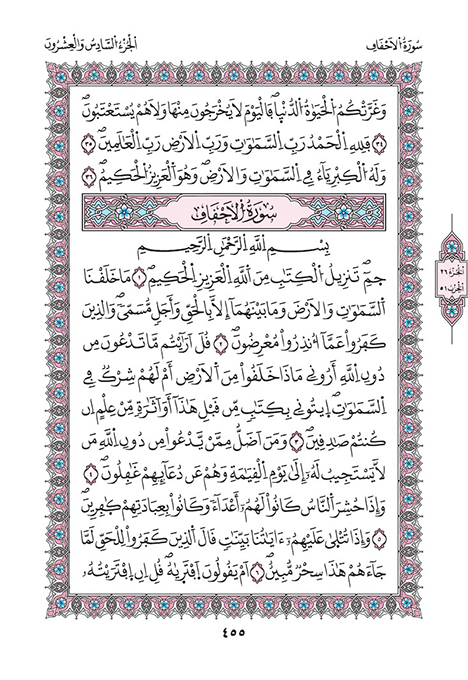 سُورَةُ الْأَحْقَافِ
الْجُزْءُ السَّادِسُ وَالْعِشْرُونَ
وَغَرَّتْكُمُ الْحَيَوٰةُ الدُّنْيَا فَالْيَوْمَ لَا يُخْرَجُونَ مِنْهَا وَلَا هُمْ يُسْتَعْتَبُونَ
٣٤ فَلِلهِ الْحَمْدُ رَبِّ السَّمَٰوَٰتِ وَرَبِّ الْأَرْضِ رَبِّ الْعَٰلَمِينَ ٣٥
وَلَهُ الْكِبْرِيَآءُ فِي السَّمَٰوَٰتِ وَالْأَرْضِ وَهُوَ الْعَزِيزُ الْحَكِيمُ ٣٦
سُورَةُ الْأَحْقَافِ
بِسْمِ اللَّهِ الرَّحْمَٰنِ الرَّحِيمِ
حمٓ تَنزِيلُ الْكِتَٰبِ مِنَ اللَّهِ الْعَزِيزِ الْحَكِيمِ ١ مَا خَلَقْنَا
السَّمَٰوَٰتِ وَالْأَرْضَ وَمَا بَيْنَهُمَآ إِلَّا بِالْحَقِّ وَأَجَلٍ مُّسَمًّى وَالَّذِينَ
كَفَرُوا عَمَّآ أُنذِرُوا مُعْرِضُونَ ٢ قُلْ أَرَآيْتُم مَّا تَدْعُونَ مِن
دُونِ اللَّهِ أَرُونِي مَاذَا خَلَقُوا مِنَ الْأَرْضِ أَمْ لَهُمْ شِرْكٌ فِي
السَّمَٰوَٰتِ اِيتُونِي بِكِتَٰبٍ مِّن قَبْلِ هَٰذَآ أَوْ أَثَٰرَةٍ مِّنْ عِلْمٍ إِن
كُنتُمْ صَٰدِقِينَ ٣ وَمَنْ أَضَلُّ مِمَّن يَدْعُوا مِن دُونِ اللَّهِ مَن
لَّا يَسْتَجِيبُ لَهُ إِلَىٰ يَوْمِ الْقِيَٰمَةِ وَهُمْ عَن دُعَآئِهِمْ غَٰفِلُونَ ٤
وَإِذَا حُشِرَ النَّاسُ كَانُوا لَهُمُ أَعْدَآءً وَكَانُوا بِعِبَادَتِهِمْ كَٰفِرِينَ
٥ وَإِذَا تُتْلَىٰ عَلَيْهِمُ ءَايَٰتُنَا بَيِّنَٰتٍ قَالَ الَّذِينَ كَفَرُوا لِلْحَقِّ لَمَّا
جَآءَهُمْ هَٰذَا سِحْرٌ مُّبِينٌ ٦ أَمْ يَقُولُونَ اَفْتَرَىٰهُ قُلْ إِنِ اِفْتَرَيْتُهُ
الجزء ٢٦
الحزب ٥١
٤٥٥